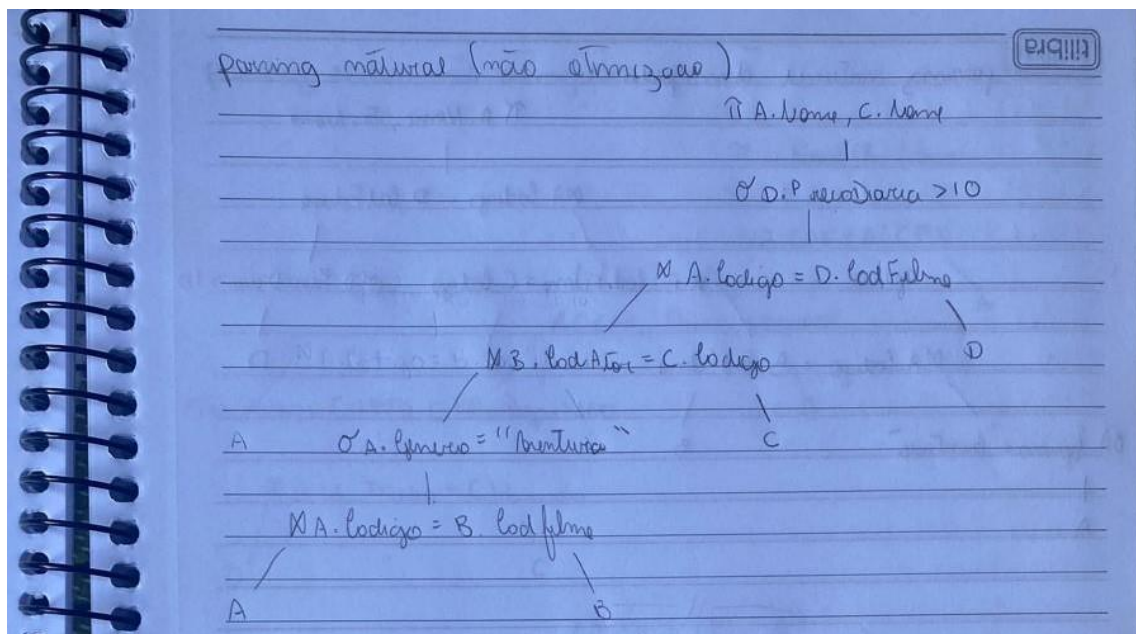 tilibra
parsing natural (não otimização)
π A.Nome, C.Nome
σ D.PrecoDiaria >10
⋈ A.Codigo = D.CodFilme
D
⋈ B.CodAtor = C.Codigo
A σ A.Genero = "Aventura" C
⋈ A.Codigo = B.Codfilme
A B